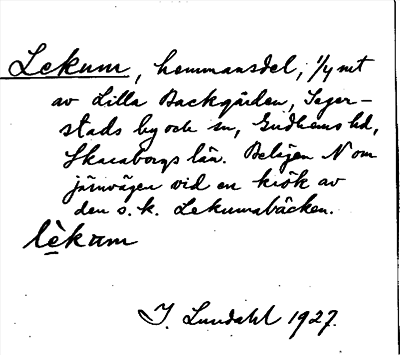 Lekum, hemmansdel, 1/4 mt
av Lilla Backgården, Seger-
stads by och sn, Gudhems hd,
Skaraborgs län. Belägen N om
järnvägen vid en krök av
den s. k. Lekumabäcken.
lèkam
I. Lundahl 1927.